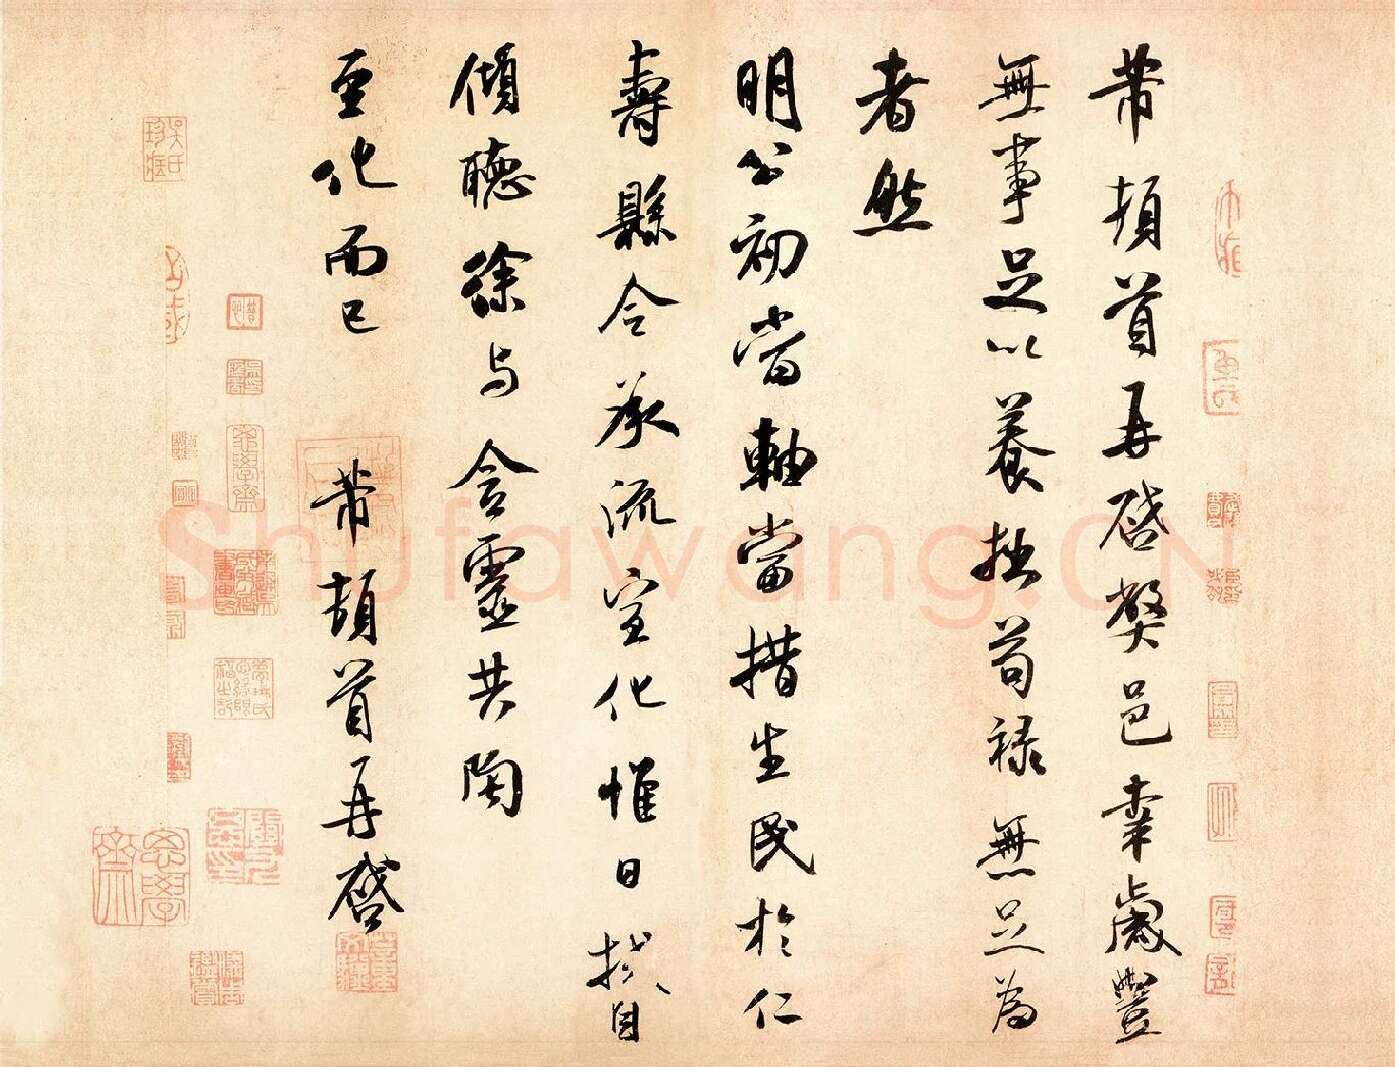 芾頓首再啓弊邑幸歲豐
無事足以養拙苟祿無足爲
者然
明公初當軸當措生民於仁
壽縣令承流宣化惟日拭目
傾聽徐與含靈共陶
至化而已 芾頓首再啓
Shufawang.CN